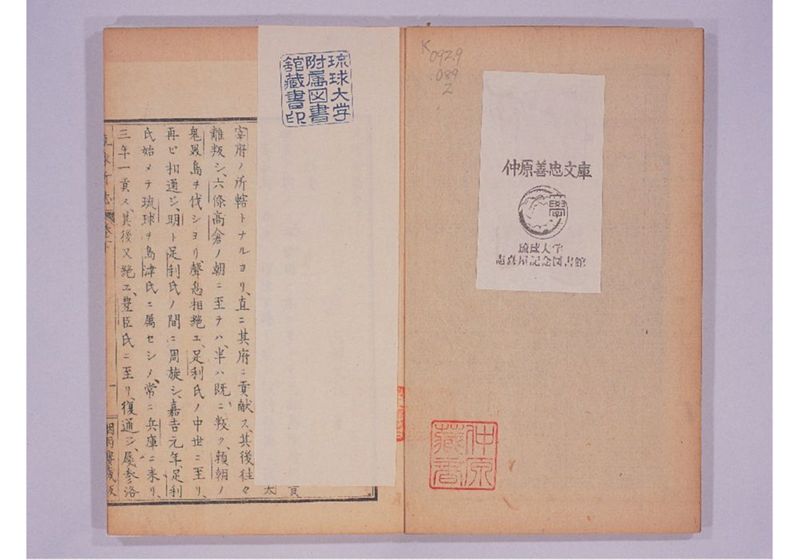 K
0929
089
Z
仲原善忠文庫
學
琉球大学
志喜屋記念図書館
仲原
藏書
琉球大学
附属図書
館蔵書印
貢
太
宰府ノ所轄トナルヨリ、直ニ其府ニ貢献ス、其後往々
離叛シ、六條高倉ノ朝ニ至テハ、半ハ既ニ叛ク、頼朝ノ
鬼界島ヲ伐シヨリ、聲息相絶エ、足利氏ノ中世ニ至リ、
再ビ相通シ、明ト足利氏ノ間ニ周旋シ、嘉吉元年足利
氏始メテ琉球ヲ島津氏ニ属セシメ、常ニ兵庫ニ来リ、
三年一貢ス、其後又絶エ、豊臣氏ニ至リ、復通シ、屡参洛